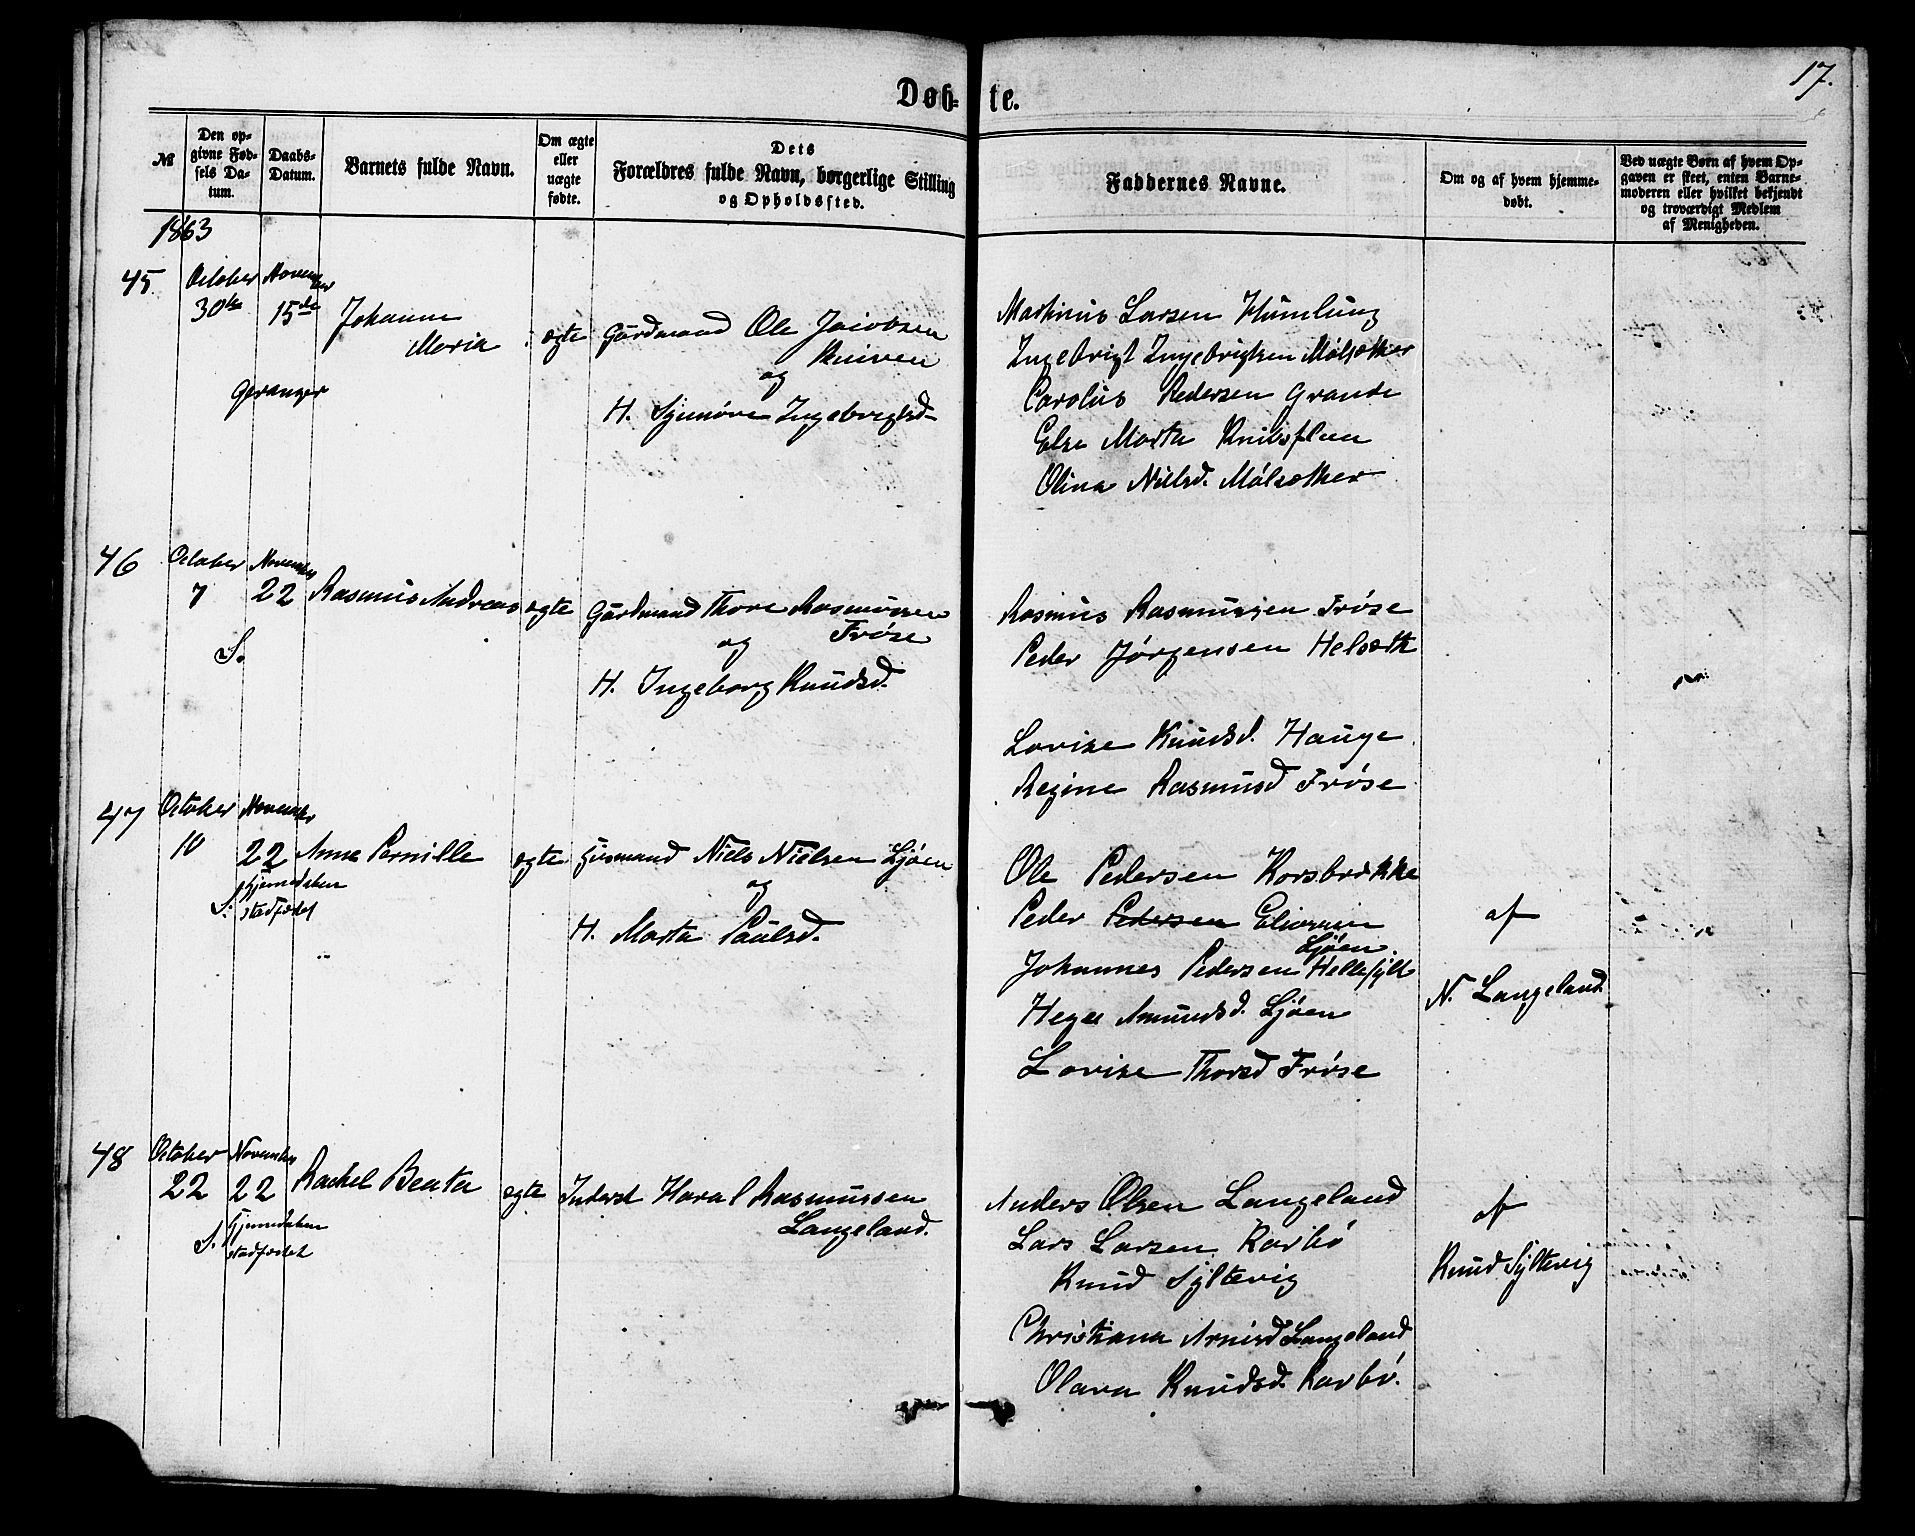 17.
Døb- te.
№
Den op-
givne Fød-
sels Da-
tum.
Daabs-
Datum.
Barnets fulde Navn.
Om ægte
eller
uægte
fødte.
Dets
Forældres fulde Navn, borgerlige Stilling
og Opholdssted.
Faddernes Navne.
Om og af hvem hjemme-
døbt.
Ved uægte Børn af hvem Op-
gaven er skeet, enten Barne-
moderen eller hvilket bekjendt
og troværdigt Medlem
af Menigheden.
1863
45
October
30te
November
15de
Johanne
Maria
ægte
Gårdmand Ole Jacobsen
Kniven
og
H. Synnøve Ingebrigtsd
Geranger
Martinus Larsen Humlung
Ingebrigt Ingebrigtsen Mólsæther
Carolus Pedersen Grande
Else Marta Knivsflaa
Olina Nielsd. Mólsæther
46
October
7
November
22
S.
Rasmus Andreas
ægte
Gårdmand Thore Rasmussen
Frøse
og
H. Ingeborg Knudsd.
Rasmus Rasmussen Frøse
Peder Jørgensen Helsæth
Lovise Knudsd. Hauge
Regine Rasmusd Frøse
47
October
10
November
22
S. Hjemedaben
stadfæstet
Anne Pernille
ægte
Husmand Niels Nielsen Ljøen
og
H. Marta Paulsd.
Ole Pedersen Korsbrække
Peder Pedersen Eliassen
Ljøen
Johannes Pedersen Hellesylt
Hege Amundsd. Ljøen
Lovise Thorsd Frøse
af
N. Langeland
48
October
22
November
22
S. Hjemedaben
stadfæstet
Rachel Beata
ægte
Inderst Haral Rasmussen
Langeland.
Anders Olsen Langeland
Lars Larsen Karbø
Knud Syltevig
Christiana Arnesd Langeland
Olava Knudsd. Karbø.
af
Knud Syltevig